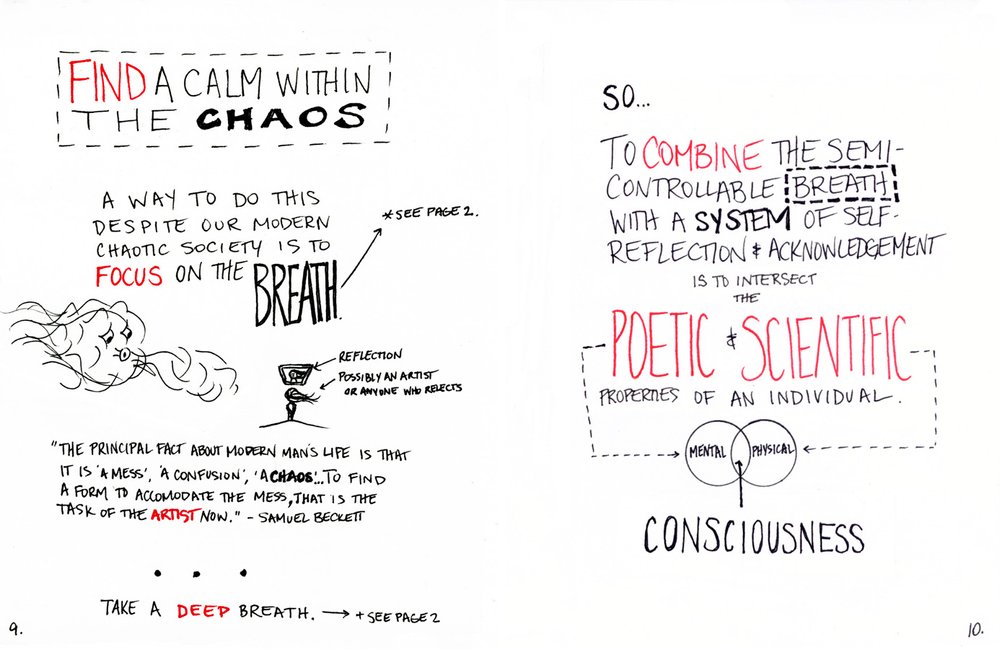 FIND A CALM WITHIN
THE CHAOS
A WAY TO DO THIS
DESPITE OUR MODERN
CHAOTIC SOCIETY IS TO
FOCUS ON THE BREATH.
*SEE PAGE 2.
REFLECTION
POSSIBLY AN ARTIST
OR ANYONE WHO RELECTS
"THE PRINCIPAL FACT ABOUT MODERN MAN'S LIFE IS THAT
IT IS 'A MESS', 'A CONFUSION', 'A CHAOS'...TO FIND
A FORM TO ACCOMODATE THE MESS, THAT IS THE
TASK OF THE ARTIST NOW." - SAMUEL BECKETT
...
TAKE A DEEP BREATH. → + SEE PAGE 2
9.
SO...
TO COMBINE THE SEMI-
CONTROLLABLE BREATH
WITH A SYSTEM OF SELF-
REFLECTION & ACKNOWLEDGEMENT
IS TO INTERSECT
THE
POETIC & SCIENTIFIC
PROPERTIES OF AN INDIVIDUAL.
MENTAL PHYSICAL
CONSCIOUSNESS
10.